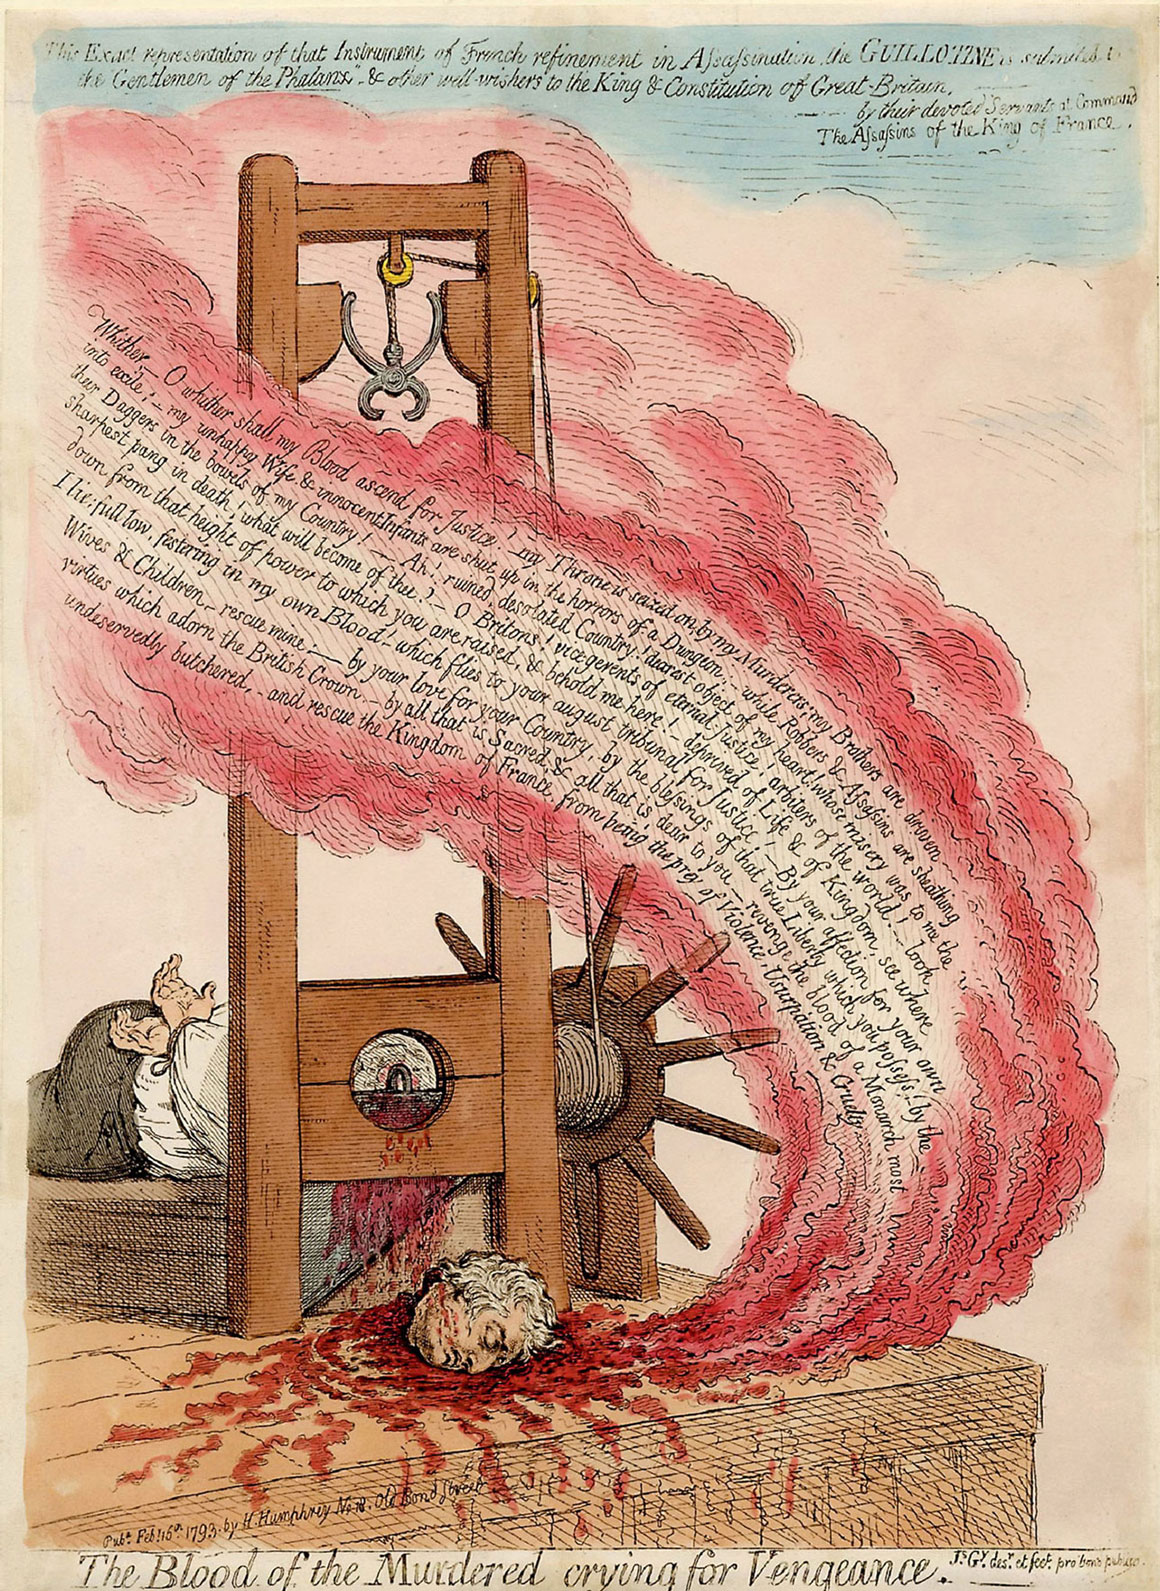 This Exact representation of that Instrument of French refinement in Aſsaſsination, the GUILLOTINE is submitted to
the Gentlemen of the Phalanx - & other well-wishers to the King & Constitution of Great-Britain,
by their devoted Servants at Command
The Aſsaſsins of the King of France.
Whither, _ O whither shall my Blood ascend for Justice! _ my Throne is seized on, by my Murderers; my Brothers are driven
into exile; _ my unhappy Wife & innocent Infants are shut up in the horrors of a Dungeon; _ while Robbers & Aſsaſsins are sheathing
their Daggers in the bowels of my Country! _ Ah! ruined, desolated Country! dearest object of my heart! whose misery was to me the
sharpest pang in death! what will become of thee? _ O Britons! vicegerents of eternal Justice! arbiters of the world! _ look
down from that height of power to which you are raised, & behold me here! _ deprived of Life & of Kingdom, see where
I lie; full low, festering in my own Blood! which flies to your august tribunal for Justice! _ By your affection for your own
Wives & Children _ rescue mine: _ by your love for your Country, by the bleſsings of that true Liberty which you poſseſs! by the
virtues which adorn the British Crown _ by all that is Sacred, & all that is dear to you _ revenge the blood of a Monarch most
undeservedly butchered, _ and rescue the Kingdom of France from being the prey of Violence, Usurpation & Cruelty.
Pubd Feby 16th 1793. by H. Humphrey No 18. Old Bond Street
The Blood of the Murdered crying for Vengeance.
Js Gy desn et fect pro bono publico.